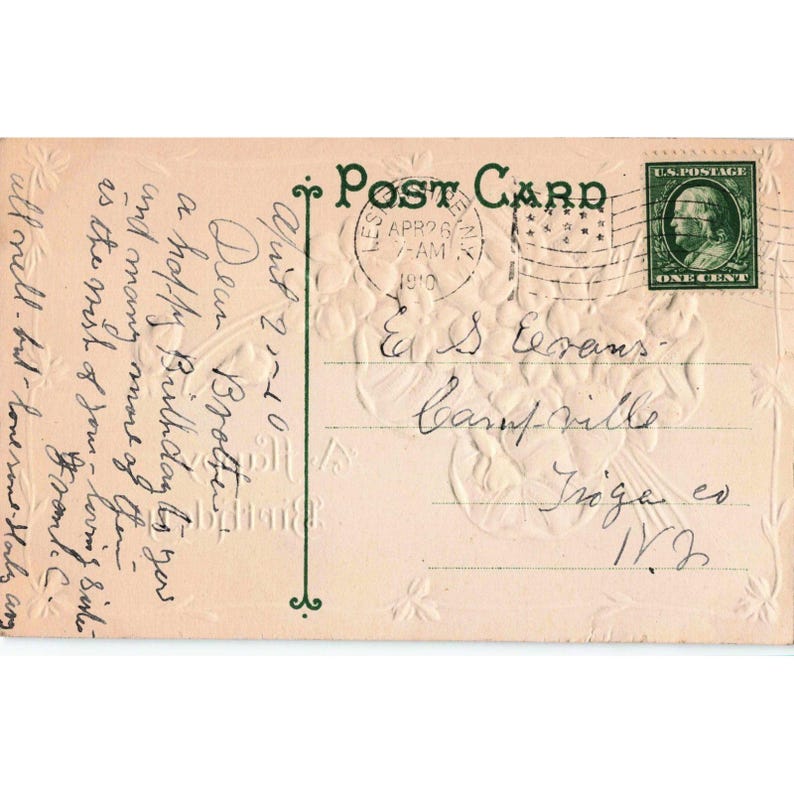 POST CARD
U.S. POSTAGE
ONE CENT
APR 26
7-AM
1910
E S Evans
Campville
Tioga co
N.Y.
April 25-10
Dear Brother
a happy Birthday to you
and many more of them
as the wish of your loving Sister
all well - but - lonesome
A Happy
Birthday